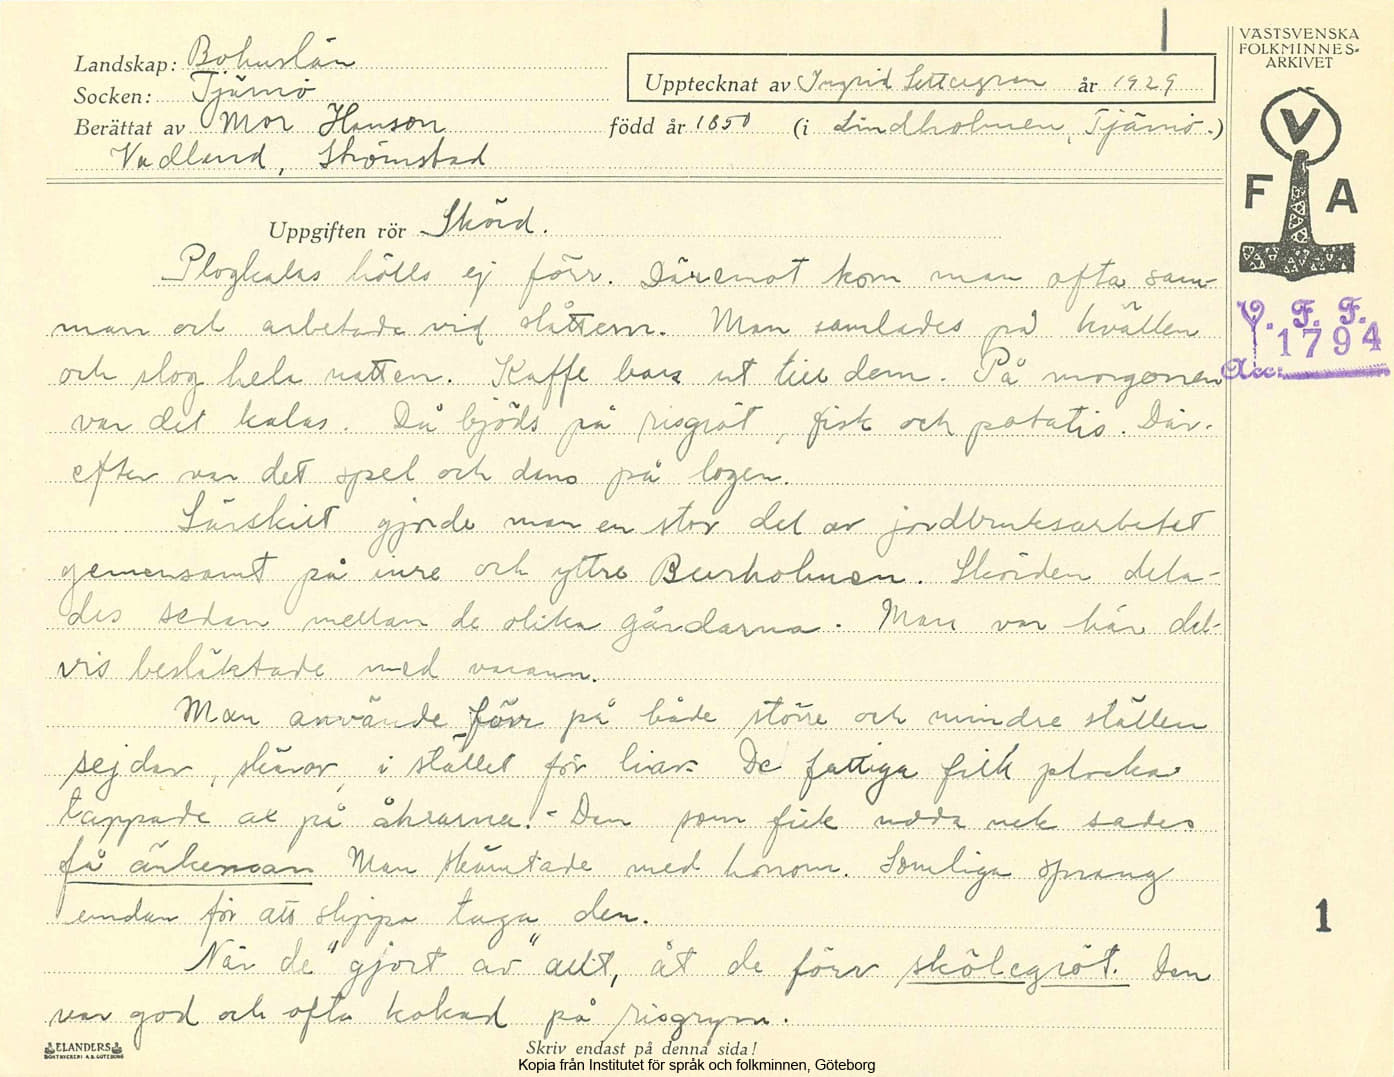 Landskap: Bohuslän
Socken: Tjärnö
Upptecknat av Ingrid år 1929
Berättat av Mor Hanson född år 1850 (i Lindholmen, Tjärnö.)
Vadland, Strömstad
VÄSTSVENSKA
FOLKMINNES-
ARKIVET
V
F A
V. F. F.
1794
Acc:
Uppgiften rör Skörd.
Plogkalas hölls ej förr. Däremot kom man ofta sam-
man och arbetade vid slåttern. Man samlades på kvällen
och slog hela natten. Kaffe bars ut till dem. På morgonen
var det kalas. Då bjöds på risgröt, fisk och potatis. Där-
efter var det spel och dans på logen.
Särskilt gjorde man en stor del av jordbruksarbetet
gemensamt på inre och yttre Burholmen. Skörden dela-
des sedan mellan de olika gårdarna. Man var här del-
vis besläktade med varann.
Man använde förr på både större och mindre ställen
sejdar, skäror, i stället för liar. De fattiga fick plocka
tappade ax på åkrarna. - Den som fick udda nek sades
få änkeman Man skämtade med honom. Somliga sprang
undan för att slippa taga den.
När de "gjort av" allt, åt de förr skölegröt. Den
var god och ofta kokad på risgryn.
1
ELANDERS
BOKTRYCKERI A.B. GÖTEBORG
Skriv endast på denna sida!
Kopia från Institutet för språk och folkminnen, Göteborg